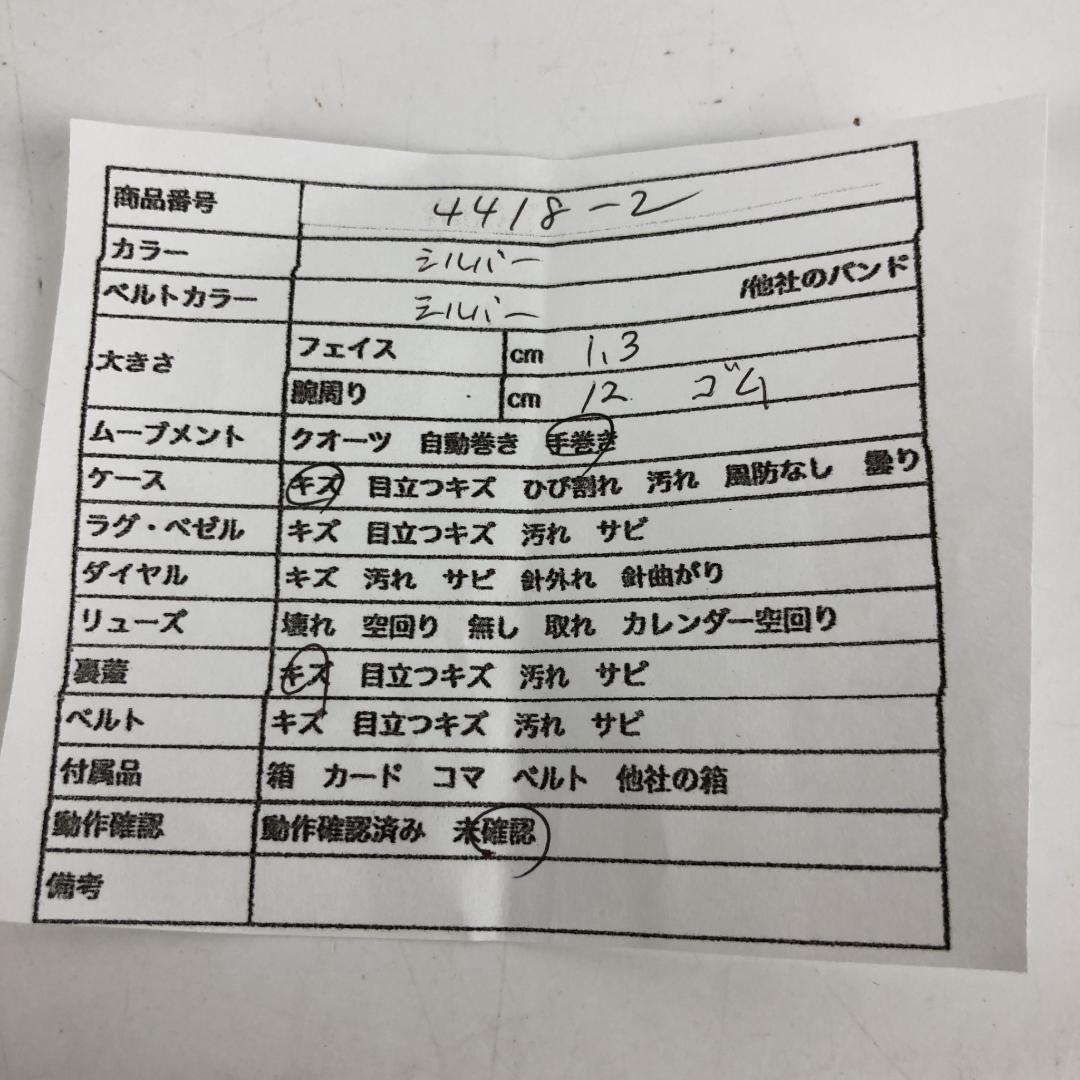 商品番号 4418-2
カラー シルバー
ベルトカラー シルバー /他社のバンド
大きさ フェイス cm 1.3
腕周り cm 12 ゴム
ムーブメント クオーツ 自動巻き 手巻き
ケース キズ 目立つキズ ひび割れ 汚れ 風防なし 曇り
ラグ・ベゼル キズ 目立つキズ 汚れ サビ
ダイヤル キズ 汚れ サビ 針外れ 針曲がり
リューズ 壊れ 空回り 無し 取れ カレンダー空回り
裏蓋 キズ 目立つキズ 汚れ サビ
ベルト キズ 目立つキズ 汚れ サビ
付属品 箱 カード コマ ベルト 他社の箱
動作確認 動作確認済み 未確認
備考